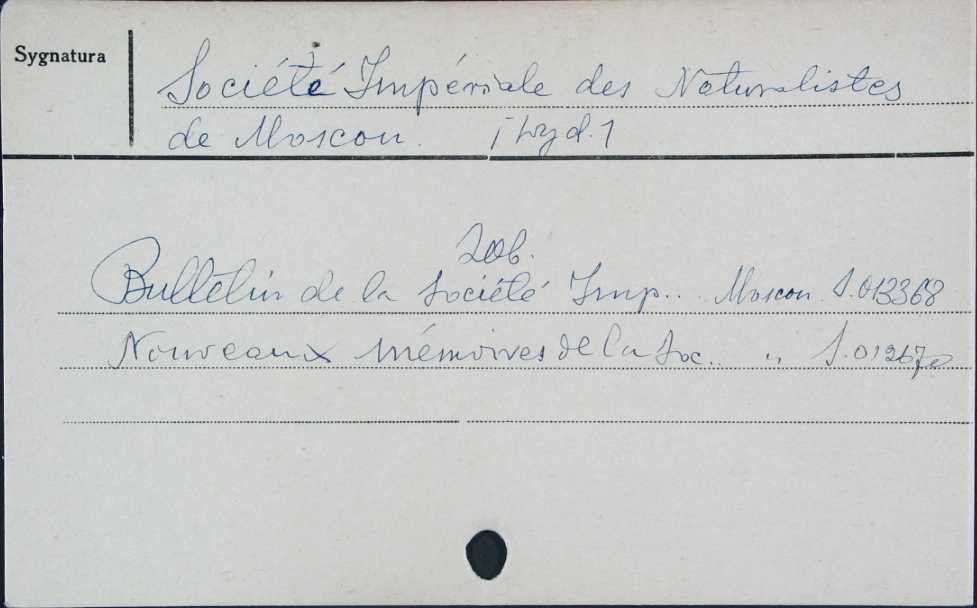 Sygnatura
Société Impériale des Naturalistes
de Moscou. [wyd.]
Zob.
Bulletin de la Société Imp... Moscou S.013368
Nouveaux mémoires de la Soc... " S.01267